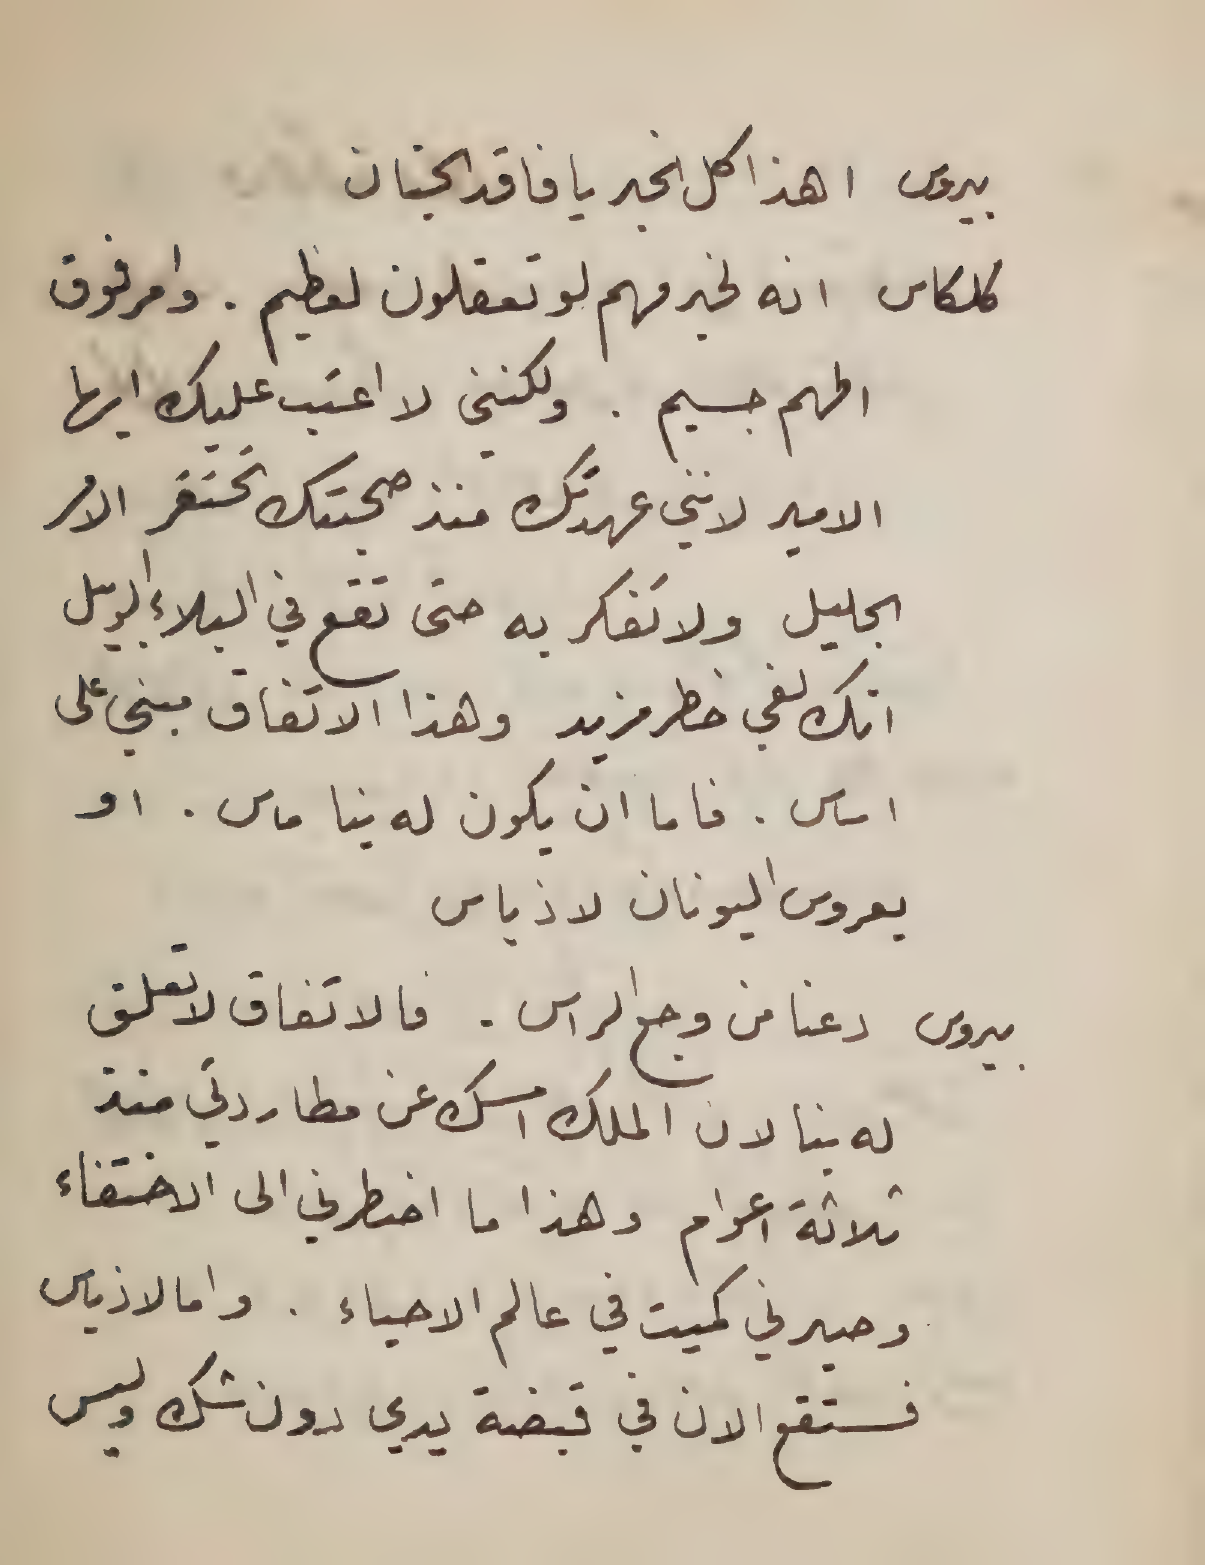 بيروس اهذا كل الخبر يا فاقد الجنان
كلكاس انه لخبر مهم لو تعقلون لعظيم . وامر فوق
المهم جسيم . ولكنني لا اعتب عليك ايها
الامير لانني عهدتك منذ صحبتك تحتقر الامر
الجليل ولا تفكر به حتى تقع في البلاء الوبيل
انك لفي خطر مزيد وهذا الاتفاق مبني على
اساس . فاما ان يكون له بنا ماس . او
بعروس اليونان لاذياس
بيروس دعنا من وجع الراس . فالاتفاق لا تعلق
له بنا لان الملك امسك عن مطاردتي منذ
ثلاثة اعوام وهذا ما اضطرني الى الاختفاء
وصيرني كميت في عالم الاحياء . واما لاذياس
فستقع الان في قبضة يدي دون شك وليس